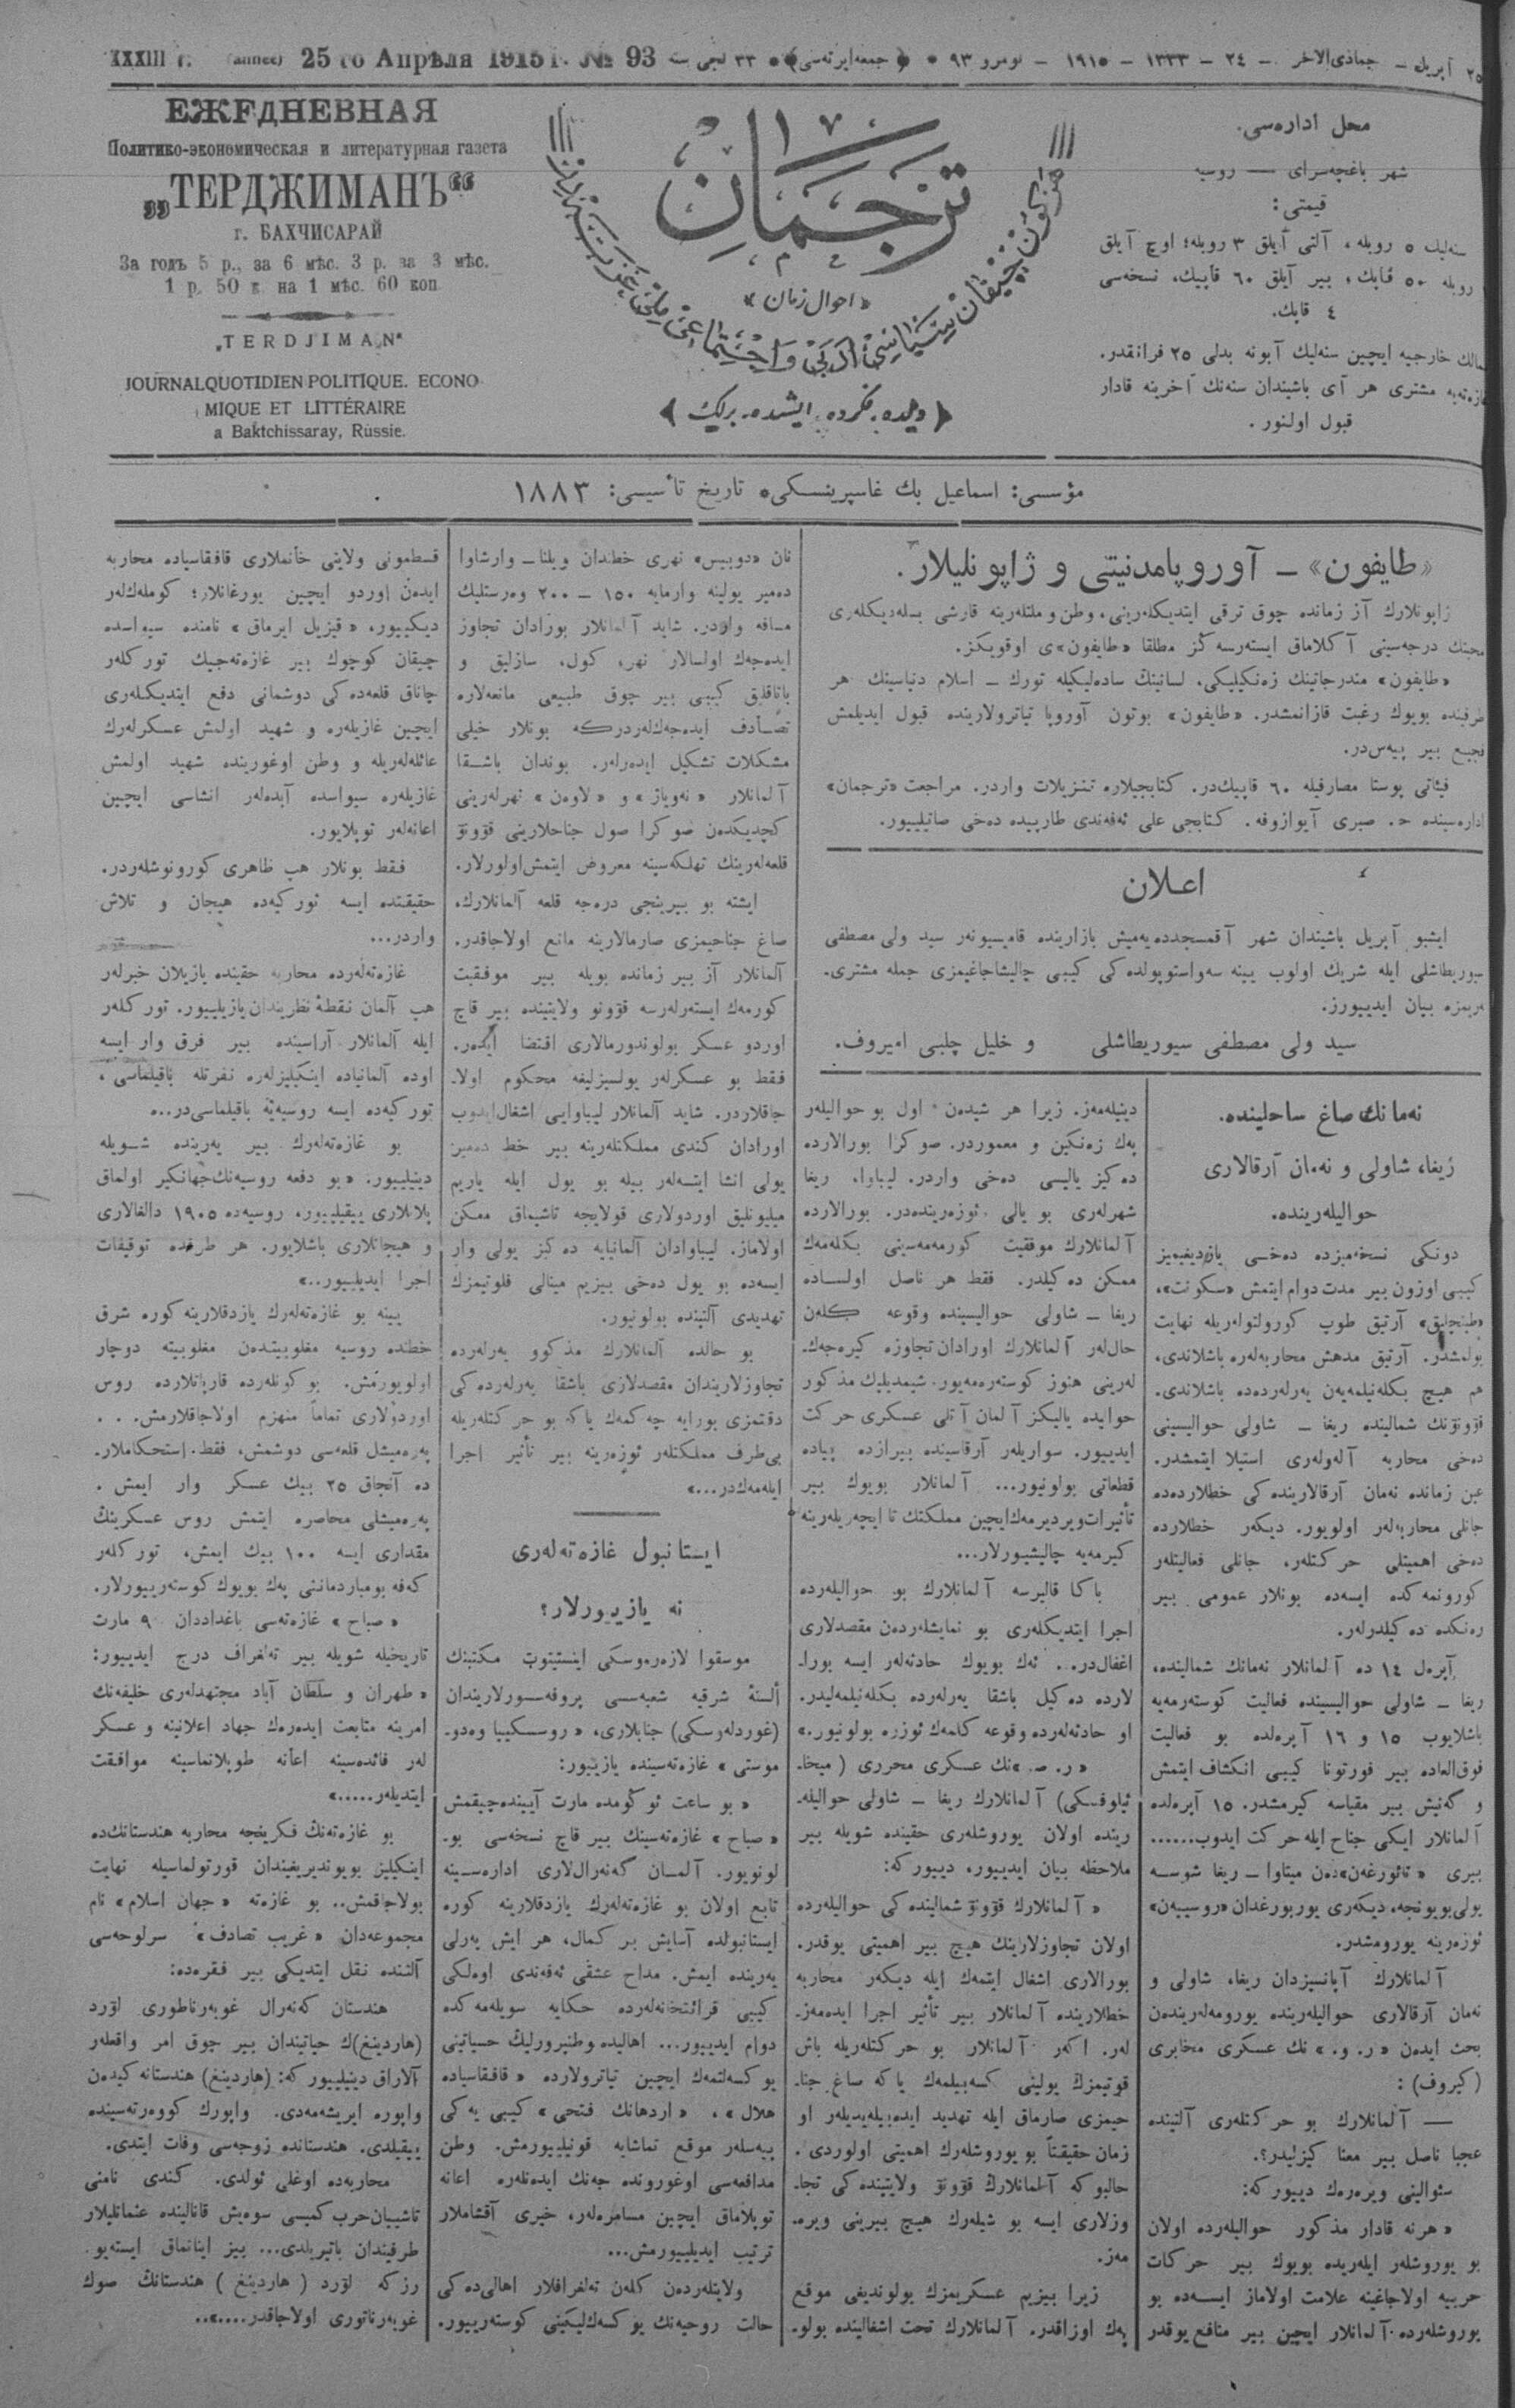 XXXIII г. (année) 25 го Апрѣля 1915 г. № 93
٣٣ نجی سنه ﴿جمعه‌ایرته‌سی﴾ نومرو ٩٣ – ١٩١٥ – ١٣٣٣ – ٢٤ – جماذی‌الاخر – ٢٥ آپریل
ЕЖЕДНЕВНАЯ
Политико-экономическая и литературная газета
„ТЕРДЖИМАНЪ“
г. БАХЧИСАРАЙ
За годъ 5 р., за 6 мѣс. 3 р. за 3 мѣс.
1 р. 50 к. на 1 мѣс. 60 коп
„TERDJIMAN“
JOURNAL QUOTIDIEN POLITIQUE. ECONO-
MIQUE ET LITTÉRAIRE
a Baktchissaray, Russie.
ترجمان
«احوال زمان»
﴿دیلده. فکرده. ایشده. برلك﴾
محل اداره‌سی.
شهر باغچه‌سرای — روسیه
قیمتی:
سنه‌لیك ٥ روبله، آلتی آیلق ٣ روبله؛ اوچ آیلق
روبله ٥٠ قاپك، بیر آیلق ٦٠ قاپیك، نسخه‌سی
٤ قاپك.
ممالك خارجیه ایچین سنه‌لیك آبونه بدلی ٢٥ فرانقدر.
غازه‌ته‌یه مشتری هر آی باشیندان سنه‌نك آخرینه قادار
قبول اولنور.
مؤسسی: اسماعیل بك غاسپرینسکی، تاریخ تأسیسی: ١٨٨٣
«طایفون» – آوروپا مدنیتی و ژاپونلیلار.
ژاپونلارك آز زمانده چوق ترقی ایتدیکله‌رینی، وطن و ملتله‌رینه قارشی بسله‌دیکله‌ری
محبتك درجه‌سینی آکلاماق ایسته‌رسه‌کز مطلقا «طایفون»ی اوقویکز.
«طایفون» مندرجاتینك زه‌نکیلیکی، لسانینڭ ساده‌لیکیله تورك – اسلام دنیاسینك هر
طرفینده بویوك رغبت قازانمشدر. «طایفون» بوتون آوروپا تیاترولارینده قبول ایدیلمش
فجیع بیر پیه‌س‌در.
فیئاتی پوستا مصارفیله ٦٠ قاپیك‌در. کتابجیلاره تنزیلات واردر. مراجعت «ترجمان»
اداره‌سینده ح. صبری آیوازوفه. کتابجی علی ئه‌فه‌ندی طارپیده دخی صاتیلییور.
اعلان
ایشبو آپریل باشیندان شهر آقمسجدده یه‌میش بازارینده قامیسیونه‌ر سید ولی مصطفی
سیوریطاشلی ایله شریك اولوب یینه سه‌واستوپولده‌کی کیبی چالیشاجاغیمزی جمله مشتری‌
له‌ریمزه بیان ایدییورز.
سید ولی مصطفی سیوریطاشلی و خلیل چلبی امیروف.
نه‌مانك صاغ ساحلینده.
ریغا، شاولی و نه‌مان آرقالاری
حوالیله‌رینده.
دونکی نسخه‌میزده ده‌خی یازدیغیمیز
کیبی اوزون بیر مدت دوام ایتمش «سکونت»،
«طینچلیق» آرتیق طوب کورولتوله‌ریله نهایت
بولمشدر. آرتیق مدهش محاربه‌له‌ره باشلاندی،
هم هیچ بکله‌نیلمه‌یه‌ن یه‌رله‌رده‌ده باشلاندی.
قووونونك شمالینده ریغا – شاولی حوالیسینی
ده‌خی محاربه آله‌وله‌ری استیلا ایتمشدر.
عین زمانده نه‌مان آرقالارینده‌کی خطلارده‌ده
جانلی محاربه‌له‌ر اولویور. دیکه‌ر خطلارده
ده‌خی اهمیتلی حرکتله‌ر، جانلی فعالیتله‌ر
کورونمه‌کده ایسه‌ده بونلار عمومی بیر
ره‌نکده ده‌کیلدرله‌ر.
آپره‌ل ١٤ ده آلمانلار نه‌مانك شمالینده،
ریغا – شاولی حوالیسینده فعالیت کوسته‌رمه‌یه
باشلایوب ١٥ و ١٦ آپره‌لده بو فعالیت
فوق‌العاده بیر فورتونا کیبی انکشاف ایتمش
و گه‌نیش بیر مقیاسه کیرمشدر. ١٥ آپره‌لده
آلمانلار ایکی جناح ایله حرکت ایدوب......
بیری «تائورغه‌ن»ده‌ن میتاوا – ریغا شوسه
یولی بویونجه، دیکه‌ری یوربورغدان «روسییه‌ن»
ئوزه‌رینه یورومشدر.
آلمانلارك آپانسیزدان ریغا، شاولی و
نه‌مان آرقالاری حوالیله‌رینده یورومه‌له‌رینده‌ن
بحث ایده‌ن «ر. و.» نك عسکری مخابری
(کیروف):
— آلمانلارك بو حرکتله‌ری آلتینده
عجبا ناصل بیر معنا کیزلیدر؟.
سئوالینی ویره‌رك دییور که:
«هر نه قادار مذکور حوالیله‌رده اولان
بو یوروشله‌ر ایله‌ریده بویوك بیر حرکات
حربیه اولاجاغینه علامت اولاماز ایسه‌ده بو
یوروشله‌رده آلمانلار ایچین بیر منافع یوقدر
دینیله‌مه‌ز. زیرا هر شیده‌ن اول بو حوالیله‌ر
پك زه‌نکین و معموردر. صوکرا بورالارده
ده‌کیز یالیسی ده‌خی واردر. لیباوا، ریغا
شهرله‌ری بو یالی ئوزه‌رینده‌در. بورالارده
آلمانلارك موفقیت کورمه‌مه‌سینی بکله‌مه‌ك
ممکن ده‌کیلدر. فقط هر ناصل اولسا‌ده
ریغا – شاولی حوالیسینده وقوعه کله‌ن
حال‌له‌ر آلمانلارك اورادان تجاوزه کیره‌جه‌ك-
له‌رینی هنوز کوسته‌ره‌مه‌یور. شیمدیلیك مذکور
حوالیده یالیکز آلمان آتلی عسکری حرکت
ایدییور. سواریله‌ر آرقاسینده بیرازده پیاده
قطعاتی بولونیور... آلمانلار بویوك بیر
تأثیرات ویردیرمه‌ك ایچین مملکتك تا ایچه‌ریله‌رینه
کیرمه‌یه چالیشیورلار...
باکا قالیرسه آلمانلارك بو حوالیله‌رده
اجرا ایتدیکله‌ری بو نمایشله‌رده‌ن مقصدلاری
اغفال‌در... ئه‌ك بویوك حادثه‌له‌ر ایسه بورا-
لارده ده‌کیل باشقا یه‌رله‌رده بکله‌نیلمه‌لیدر.
او حادثه‌له‌رده وقوعه کلمه‌ك ئوزره بولونیور.»
«ر. ص.»نك عسکری محرری (میخا-
ئیلوفسکی) آلمانلارك ریغا – شاولی حوالیله-
رینده اولان یوروشله‌ری حقینده شویله بیر
ملاحظه بیان ایدییور، دییور که:
«آلمانلارك قوونو شمالینده‌کی حوالیله‌رده
اولان تجاوزلارینك هیچ بیر اهمیتی یوقدر.
بورالاری اشغال ایتمه‌ك ایله دیکه‌ر محاربه
خطلارینده آلمانلار بیر تأثیر اجرا ایده‌مه‌ز-
له‌ر. اکه‌ر آلمانلار بو حرکتله‌ریله باش
قوتیمزك یولینی که‌سه‌بیلمه‌ك یاکه صاغ جنا-
حیمزی صارماق ایله تهدید ایده‌بیله‌یدیله‌ر او
زمان حقیقتاً بو یوروشله‌رك اهمیتی اولوردی.
حالبوکه آلمانلارڭ قوونو ولایتینده‌کی تجا-
وزلاری ایسه بو شیله‌رك هیچ بیرینی ویره-
مه‌ز.
زیرا بیزیم عسکریمزك بولوندیغی موقع
پك اوزاقدر. آلمانلارك تحت اشغالینده بولو-
نان «دوبیس» نهری خطندان ویلنا – وارشاوا
ده‌میر یولینه وارمایه ١٥٠ – ٢٠٠ وه‌رستلیك
مسافه واردر. شاید آلمانلار بورادان تجاوز
ایده‌جه‌ك اولسالار نهر، کول، سازلیق و
باتاقلق کیبی بیر چوق طبیعی مانعه‌لاره
تصادف ایده‌جه‌کله‌ردرکه بونلار خیلی
مشکلات تشکیل ایده‌رله‌ر. بوندان باشقا
آلمانلار «نه‌ویاز» و «لاوه‌ن» نهرله‌رینی
کچدیکده‌ن صوکرا صول جناحلارینی قوونو
قلعه‌له‌رینك تهلکه‌سینه معروض ایتمش اولورلار.
ایشته بو بیرینجی درجه قلعه آلمانلارك،
صاغ جناحیمزی صارمالارینه مانع اولاجاقدر.
آلمانلار آز بیر زمانده بویله بیر موفقیت
کورمه‌ك ایسته‌رله‌رسه قوونو ولایتینده بیر قاچ
اوردو عسکر بولوندورمالاری اقتضا ایده‌ر.
فقط بو عسکرله‌ر یولسیزلیغه محکوم اولا-
جاقلاردر. شاید آلمانلار لیباوایی اشغال ایدوب
اورادان کندی مملکتله‌رینه بیر خط ده‌میر
یولی انشا ایتسه‌له‌ر بیله بو یول ایله یاریم
میلیونلیق اوردولاری قولایجه تاشیماق ممکن
اولاماز. لیباوادان آلمانیایه ده‌کیز یولی وار
ایسه‌ده بو یول ده‌خی بیزیم مینالی فلوتیمزك
تهدیدی آلتینده بولونیور.
بو حالده آلمانلارك مذکور یه‌رله‌رده
تجاوزلاریندان مقصدلاری باشقا یه‌رله‌رده‌کی
دقتمزی بورایه چه‌کمه‌ك یاکه بو حرکتله‌ریله
بی‌طرف مملکتله‌ر ئوزه‌رینه بیر تأثیر اجرا
ایله‌مه‌ك‌در...»
ایستانبول غازه‌ته‌له‌ری
نه یازییورلار؟
موسقوا لازه‌ره‌وسکی اینستیتوت مکتبنك
ألسنهٔ شرقیه شعبه‌سی پروفه‌سورلاریندان
(غوردله‌وسکی) جنابلاری، «روسسکییا وه‌دو-
موستی» غازه‌ته‌سینده یازییور:
«بو ساعت ئوکومده مارت آییندا چیقمش
«صباح» غازه‌ته‌سینك بیر قاچ نسخه‌سی بو-
لونویور. آلمان گه‌نه‌رال‌لاری اداره‌سینه
تابع اولان بو غازه‌ته‌له‌رك یازدقلارینه کوره
ایستانبولده آسایش بر کمال، هر ایش یه‌رلی
یه‌رینده ایمش. مداح عشقی ئه‌فه‌ندی اوه‌لکی
کیبی قرائتخانه‌له‌رده حکایه سویله‌مه‌کده
دوام ایدییور... اهالیده وطنپرورلیڭ حسیاتینی
یوکسه‌لتمه‌ك ایچین تیاترولارده «قافقاسیاده
هلال»، «اردهانك فتحی» کیبی یه‌کی
پیه‌سله‌ر موقع تماشایه قونیلییورمش. وطن
مدافعه‌سی اوغورونده جه‌نك ایده‌نله‌ره اعانه
توپلاماق ایچین مسامره‌له‌ر، خیری آقشاملار
ترتیب ایدیلییورمش...
ولایتله‌رده‌ن کله‌ن ته‌لغرافلار اهالی‌ده‌کی
حالت روحیه‌نك یوکسه‌ك‌لیکینی کوسته‌رییور.
قسطمونی ولایتی خانملاری قافقاسیاده محاربه
ایده‌ن اوردو ایچین یورغانلار؛ کومله‌ك‌له‌ر
دیکییور، «قیزیل ایرماق» نامنده سیواسده
چیقان کوچوك بیر غازه‌ته‌جیك تورکله‌ر
چاناق قلعه‌ده‌کی دوشمانی دفع ایتدیکله‌ری
ایچین غازیله‌ره و شهید اولمش عسکرله‌رك
عائله‌له‌ریله و وطن اوغورینده شهید اولمش
غازیله‌ره سیواسده آبده‌له‌ر انشاسی ایچین
اعانه‌له‌ر توپلایور.
فقط بونلار هب ظاهری کورونوشله‌ردر.
حقیقتده ایسه تورکیه‌ده هیجان و تلاش
واردر...
غازه‌ته‌له‌رده محاربه حقینده یازیلان خبرله‌ر
هب آلمان نقطهٔ نظریندان یازیلییور. تورکله‌ر
ایله آلمانلار آراسینده بیر فرق وار ایسه
اوده آلمانیاده اینکیلیزله‌ره نفرتله باقیلماسی،
تورکیه‌ده ایسه روسیه‌یه باقیلماسی‌در...
بو غازه‌ته‌له‌رك بیر یه‌رینده شویله
دینیلییور: «بو دفعه روسیه‌نك جهانکیر اولماق
پلانلاری ییقیلییور، روسیه‌ده ١٩٠٥ دالغالاری
و هیجانلاری باشلایور. هر طرفده توقیفات
اجرا ایدیلییور..»
یینه بو غازه‌ته‌له‌رك یازدقلارینه کوره شرق
خطنده روسیه مغلوبیتده‌ن مغلوبیته دوچار
اولویورمش. بو کونله‌رده قارپاتلارده روس
اوردولاری تماماً منهزم اولاجاقلارمش...
په‌ره‌میشل قلعه‌سی دوشمش، فقط استحکاملار-
ده آنجاق ٢٥ بیك عسکر وار ایمش.
په‌ره‌میشلی محاصره ایتمش روس عسکرینڭ
مقداری ایسه ١٠٠ بیك ایمش، تورکله‌ر
که‌فه بومباردماننی پك بویوك کوسته‌رییورلار.
«صباح» غازه‌ته‌سی باغداددان ٩ مارت
تاریخیله شویله بیر ته‌لغراف درج ایدییور:
«طهران و سلطان آباد مجتهدله‌ری خلیفه‌نك
امرینه متابعت ایده‌رك جهاد اعلانینه و عسکر
له‌ر فائده‌سینه اعانه طوپلانماسینه موافقت
ایتدیله‌ر.....»
بو غازه‌ته‌نڭ فکرینجه محاربه هندستانك‌ده
اینکیلیز بویوندیریغیندان قورتولماسیله نهایت
بولاجاقمش.. بو غازه‌ته «جهان اسلام» نام
مجموعه‌دان «غریب تصادف» سرلوحه‌سی
آلتنده نقل ایتدیکی بیر فقره‌ده:
هندستان که‌نه‌رال غوبه‌رناطوری لورد
(هاردینغ)ك حیاتیندان بیر چوق امر واقعله‌ر
آلاراق دینیلییور که: (هاردینغ) هندستانه کیده‌ن
واپوره ایریشه‌مه‌دی. واپورك کووه‌رته‌سینده
ییقیلدی. هندستانده زوجه‌سی وفات ایتدی.
محاربه‌ده اوغلی ئولدی. کندی نامنی
تاشییان حرب کمیسی سوه‌یش قانالینده عثمانلیلار
طرفیندان باتیریلدی... بیز اینانماق ایسته‌یو-
رز که لورد (هاردینغ) هندستانڭ صوك
غوبه‌رناتوری اولاجاقدر.....».